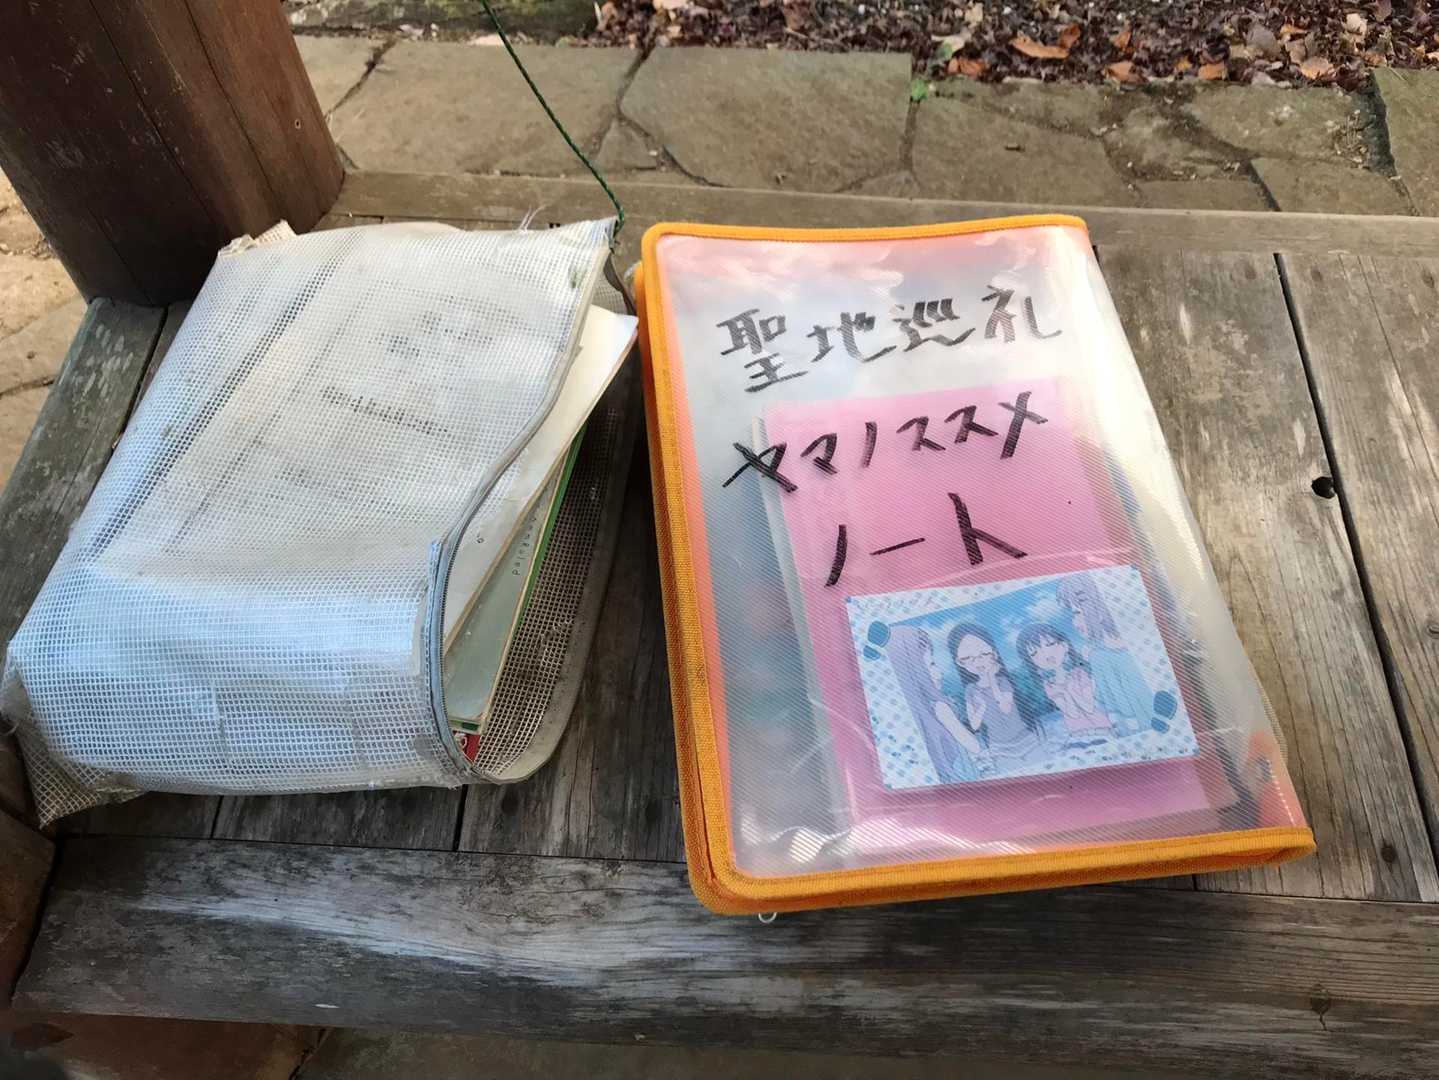 聖地巡礼
ヤマノススメ
ノート